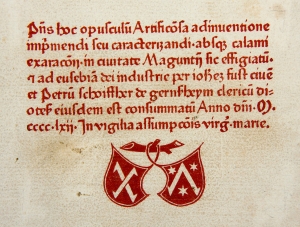 Pn̄s hoc opusculū Artificōsa adinuentione
impͥmendi seu caracterizandi · absqꝫ calami
exaracōn · in ciuitate Magunt̄ sic effigiatū ·
⁊ ad eusebiā dei industrie per iohēꝫ fust ciuē
et Petrū schoiffher de gernsheym clericū di⸗
oteꝭ eiusdem est consummatū Anno dn̄i · M
cccc · lxii · In vigilia assumpcōis virgͥ · marie ·